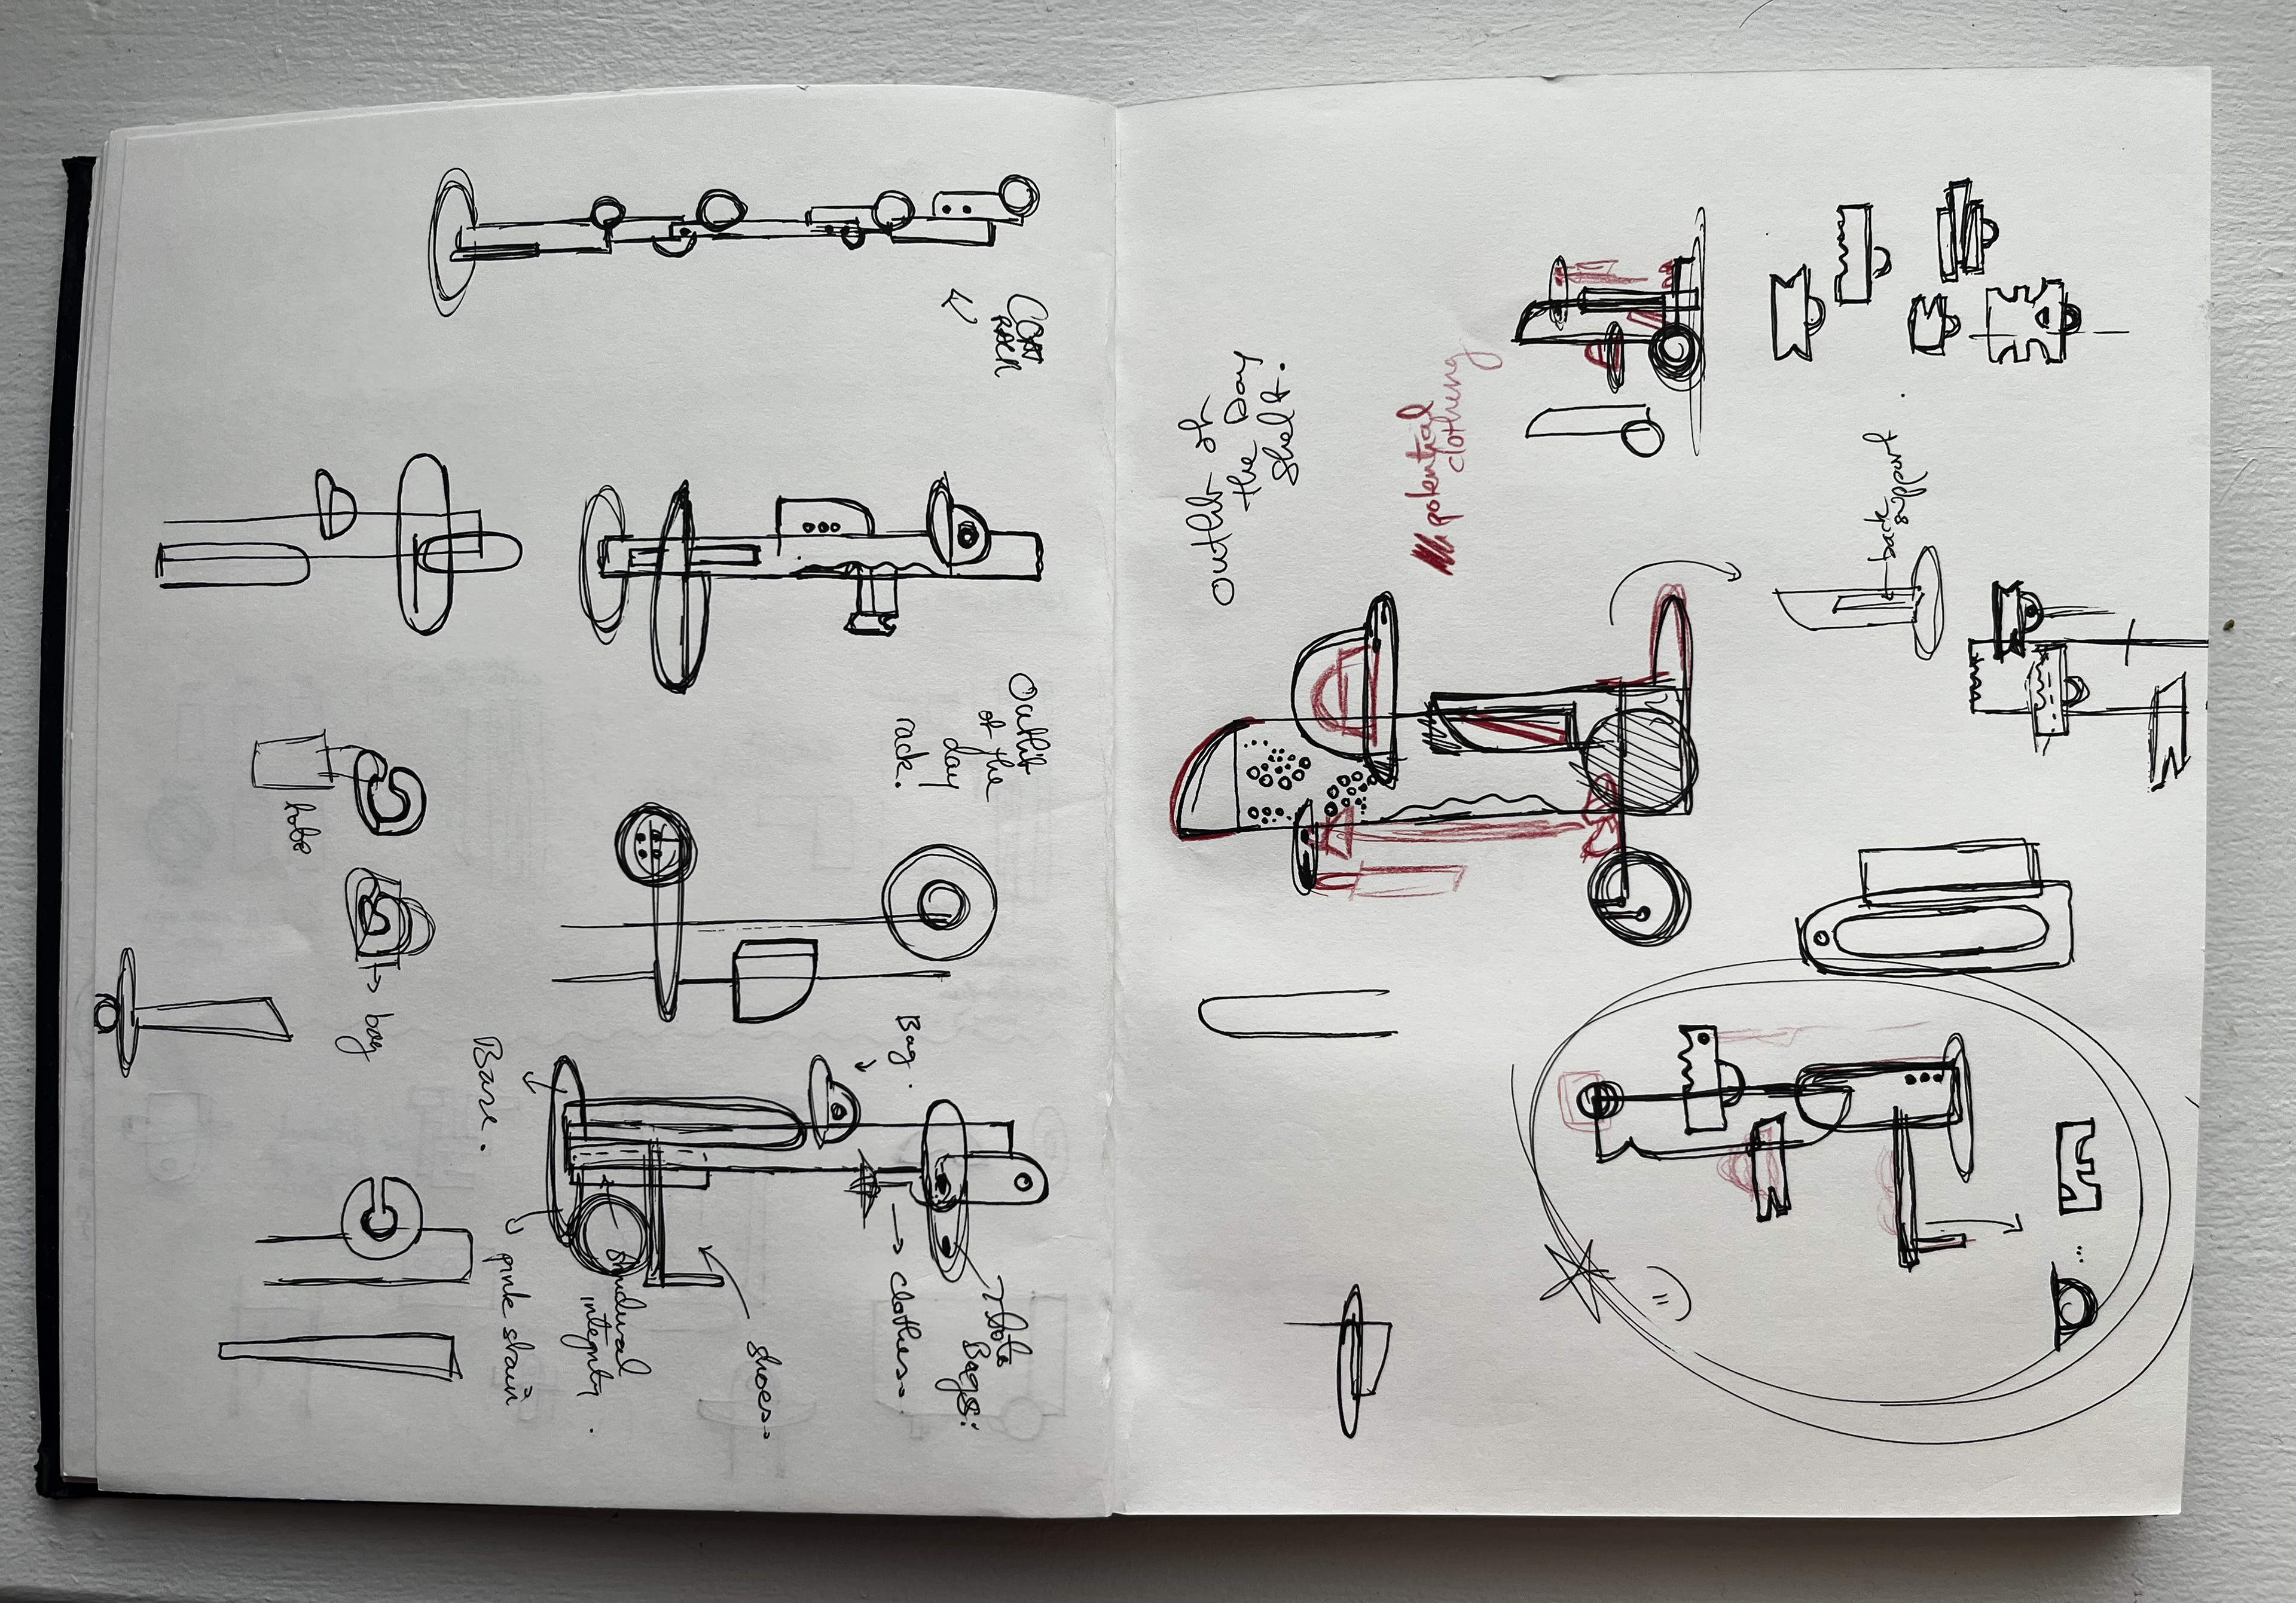 COAT
RACK
Outfit
of the
day
rack.
hole
bag
Bag.
Base.
Tote
Bags:
clothes.
shoes.
structural
integrity.
pink stain
outfit of
the Day
shelf.
potential
clothing
back
support